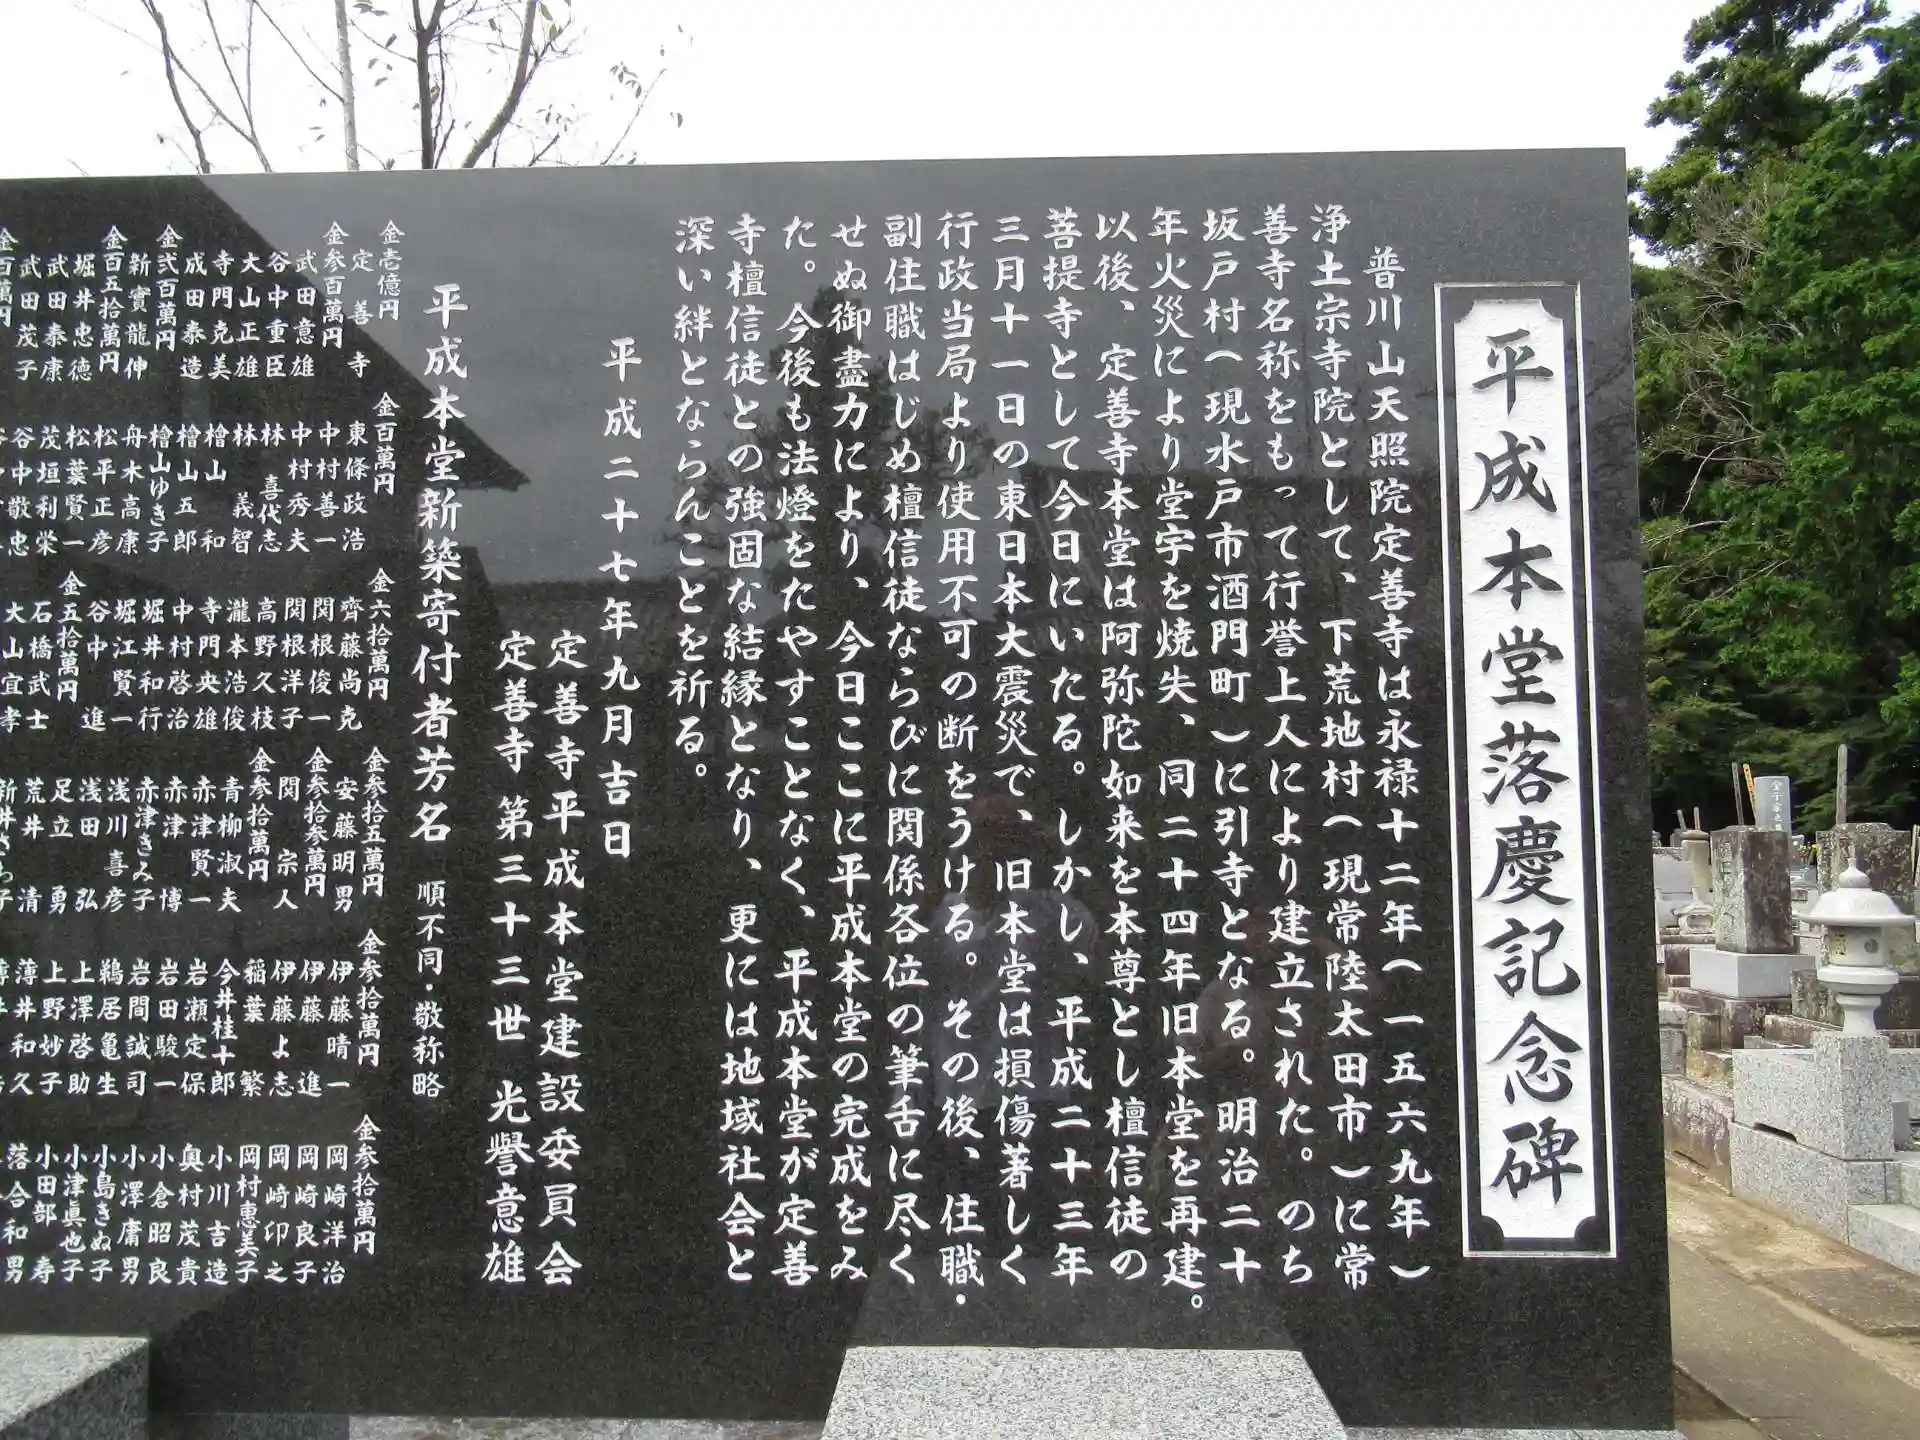 平成本堂落慶記念碑
普川山天照院定善寺は永禄十二年(一五六九年)
浄土宗寺院として、下荒地村(現常陸太田市)に常
善寺名称をもって行誉上人により建立された。のち
坂戸村(現水戸市酒門町)に引寺となる。明治二十
年火災により堂宇を焼失、同二十四年旧本堂を再建。
以後、定善寺本堂は阿弥陀如来を本尊とし檀信徒の
菩提寺として今日にいたる。しかし、平成二十三年
三月十一日の東日本大震災で、旧本堂は損傷著しく
行政当局より使用不可の断をうける。その後、住職・
副住職はじめ檀信徒ならびに関係各位の筆舌に尽く
せぬ御盡力により、今日ここに平成本堂の完成をみ
た。今後も法燈をたやすことなく、平成本堂が定善
寺檀信徒との強固な結縁となり、更には地域社会と
深い絆とならんことを祈る。
平成二十七年九月吉日
定善寺平成本堂建設委員会
定善寺 第三十三世 光譽意雄
平成本堂新築寄付者芳名 順不同・敬称略
金壱億円
定善寺
金参百萬円
武田意雄
谷中重臣
大山正雄
寺門克美
成田泰造
金弐百萬円
新實龍伸
金百五拾萬円
堀井忠徳
武田泰康
武田茂子
金百萬円
金百萬円
東條政浩
中村善一
中村秀夫
林喜代志
林義智
檜山和
檜山五郎
檜山ゆき子
舟木高康
松平正彦
松葉賢一
茂垣利栄
谷中敬忠
金六拾萬円
齊藤尚克
関根俊一
関根洋子
高野久枝
瀧本浩俊
寺門央雄
中村啓治
堀井和行
堀江賢一
谷中進
金五拾萬円
石橋武士
大山宜孝
金参拾五萬円
安藤明男
金参拾参萬円
関宗人
金参拾萬円
青柳淑夫
赤津賢一
赤津博
赤津きみ子
浅川喜彦
浅田弘
足立勇
荒井清
金参拾萬円
伊藤晴一
伊藤進
伊藤よ志
稲葉繁
今井桂十郎
岩瀬定保
岩田駿一
岩間誠司
鵜居亀生
上澤啓助
上野妙子
薄井和久
金参拾萬円
岡崎洋治
岡崎良子
岡崎印之
岡村惠美子
小川吉造
奥村茂貴
小倉昭良
小澤庸男
小島きぬ子
小津眞也子
小田部寿
落合和男